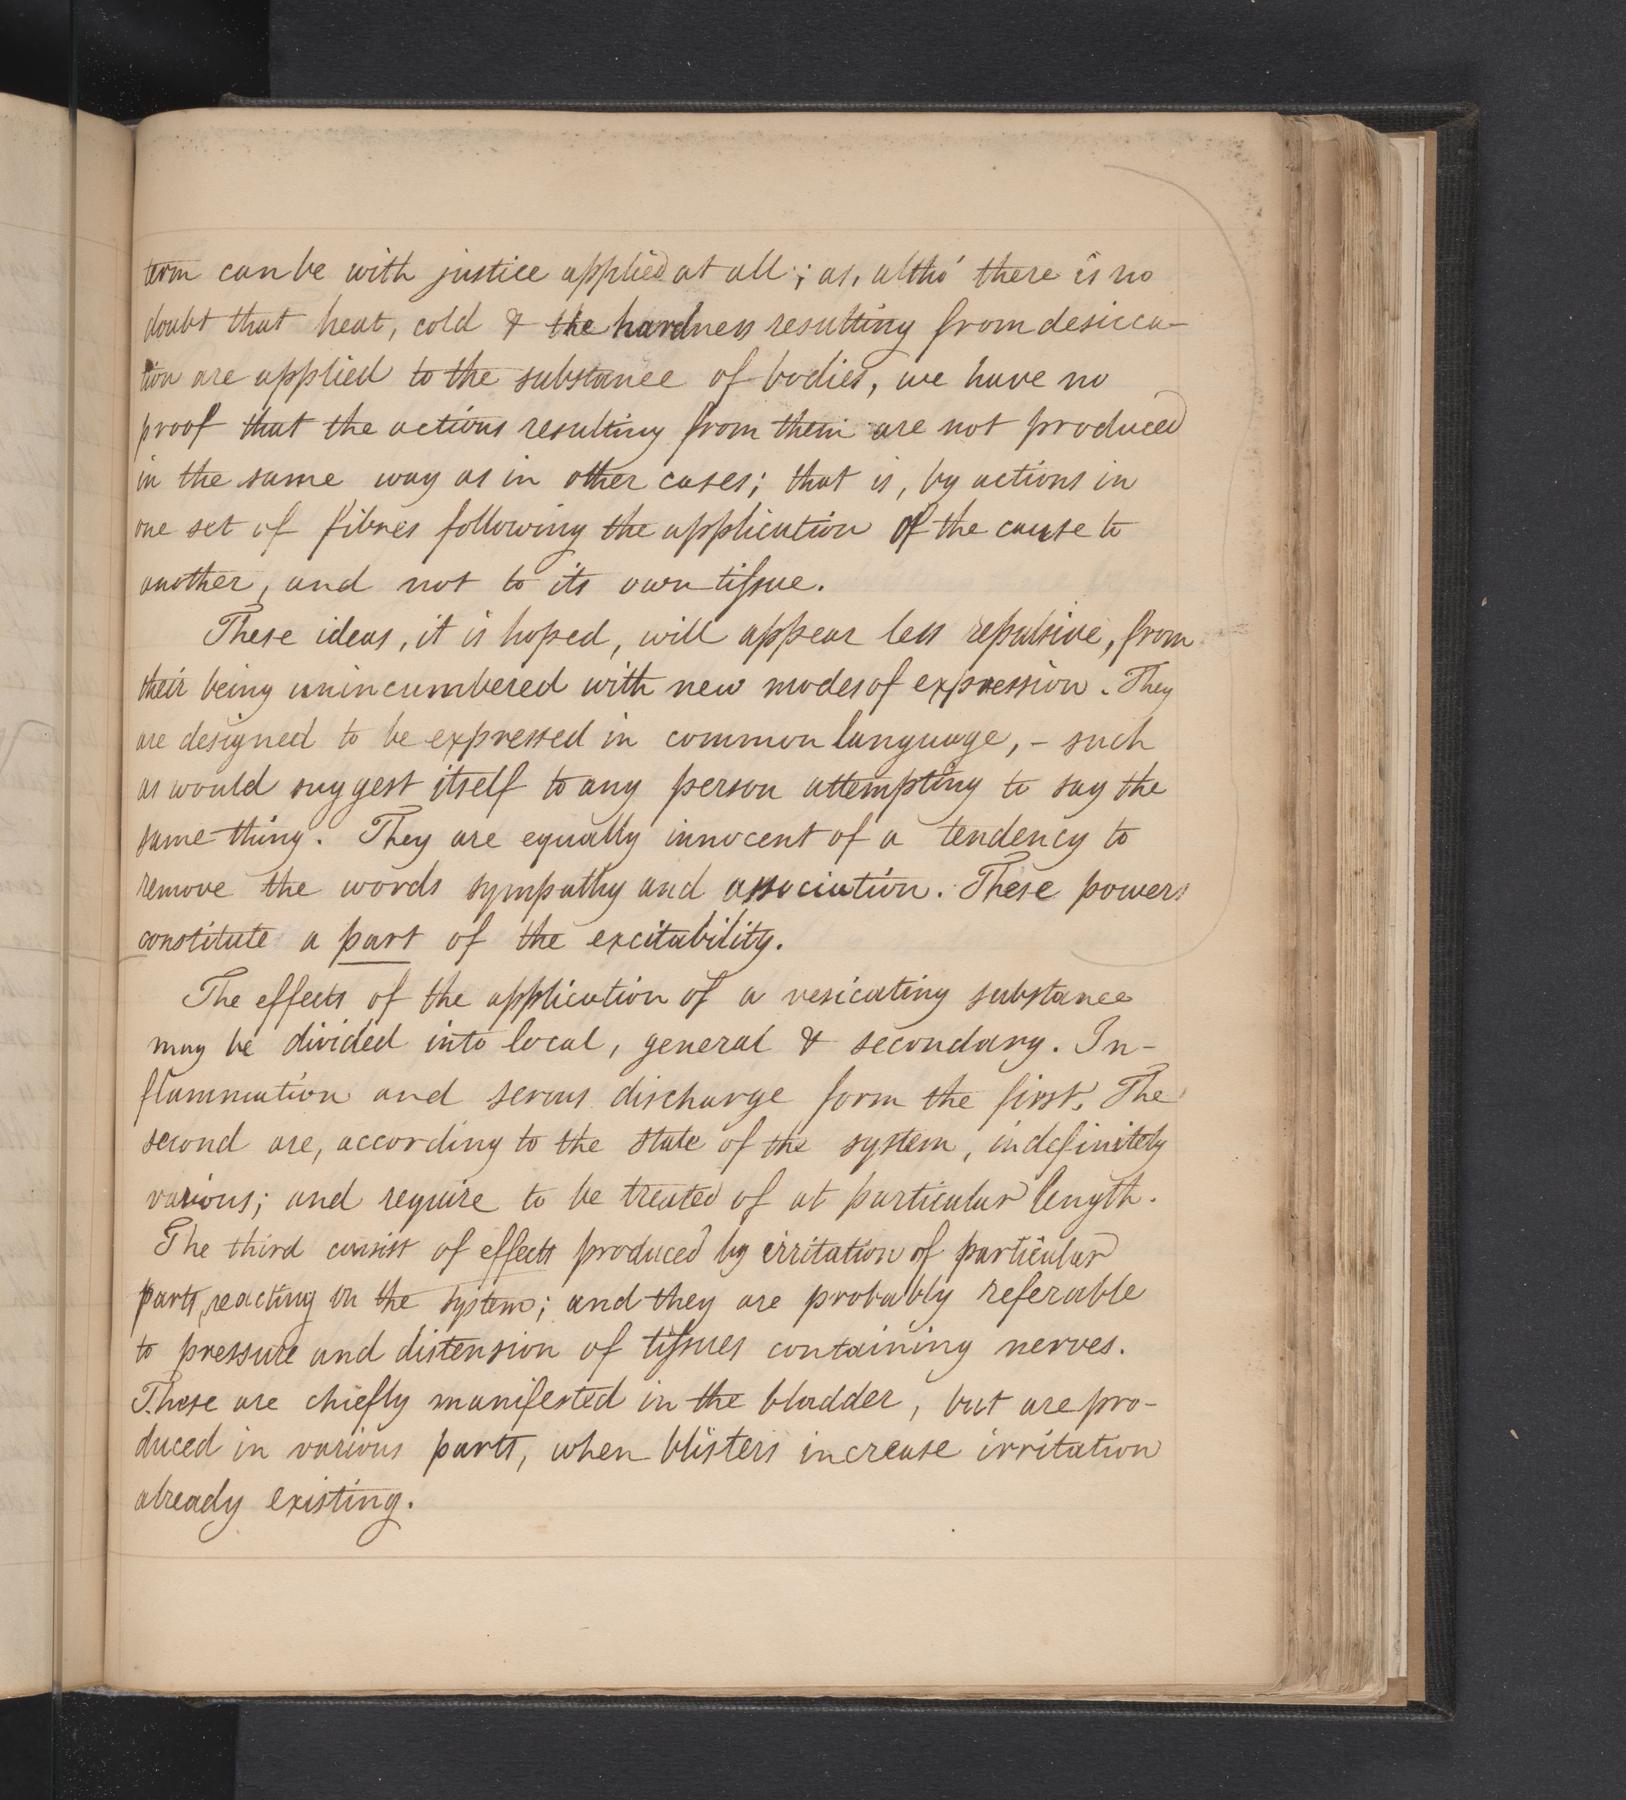 term can be with justice applied at all; as, altho' there is no
doubt that heat, cold & the hardness resulting from desicca-
tion are applied to the substance of bodies, we have no
proof that the actions resulting from them are not produced
in the same way as in other cases; that is, by actions in
one set of fibres following the application of the cause to
another, and not to its own tissue.
These ideas, it is hoped, will appear less repulsive, from
their being unincumbered with new modes of expression. They
are designed to be expressed in common language, - such
as would suggest itself to any person attempting to say the
same thing. They are equally innocent of a tendency to
remove the words sympathy and association. These powers
constitute a part of the excitability.
The effects of the application of a vesicating substance
may be divided into local, general & secondary. In-
flammation and serous discharge form the first. The
second are, according to the state of the system, indefinitely
various; and require to be treated of at particular length.
The third consist of effects produced by irritation of particular
parts, reacting on the system; and they are probably referable
to pressure and distension of tissues containing nerves.
These are chiefly manifested in the bladder, but are pro-
duced in various parts, when blisters increase irritation
already existing.